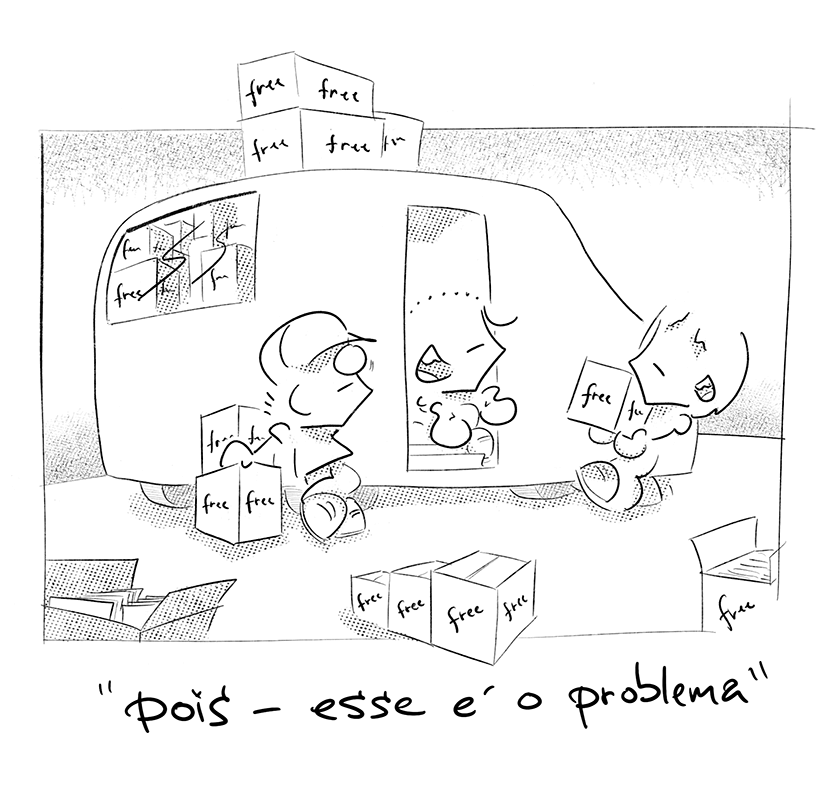 free free
free free
free
free
free
free free
free free free free
free
"pois - esse é o problema"